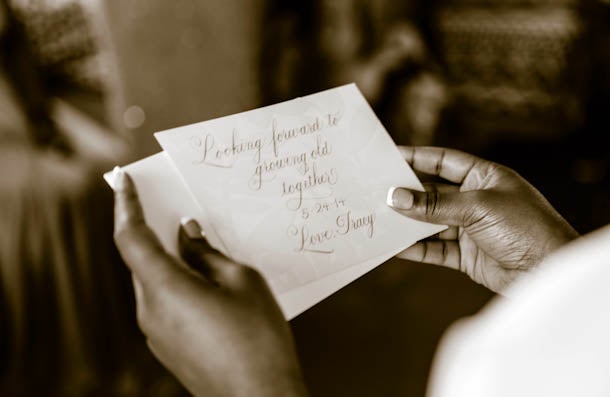 Looking forward to
growing old
together
5-24-14
Love, Tracy